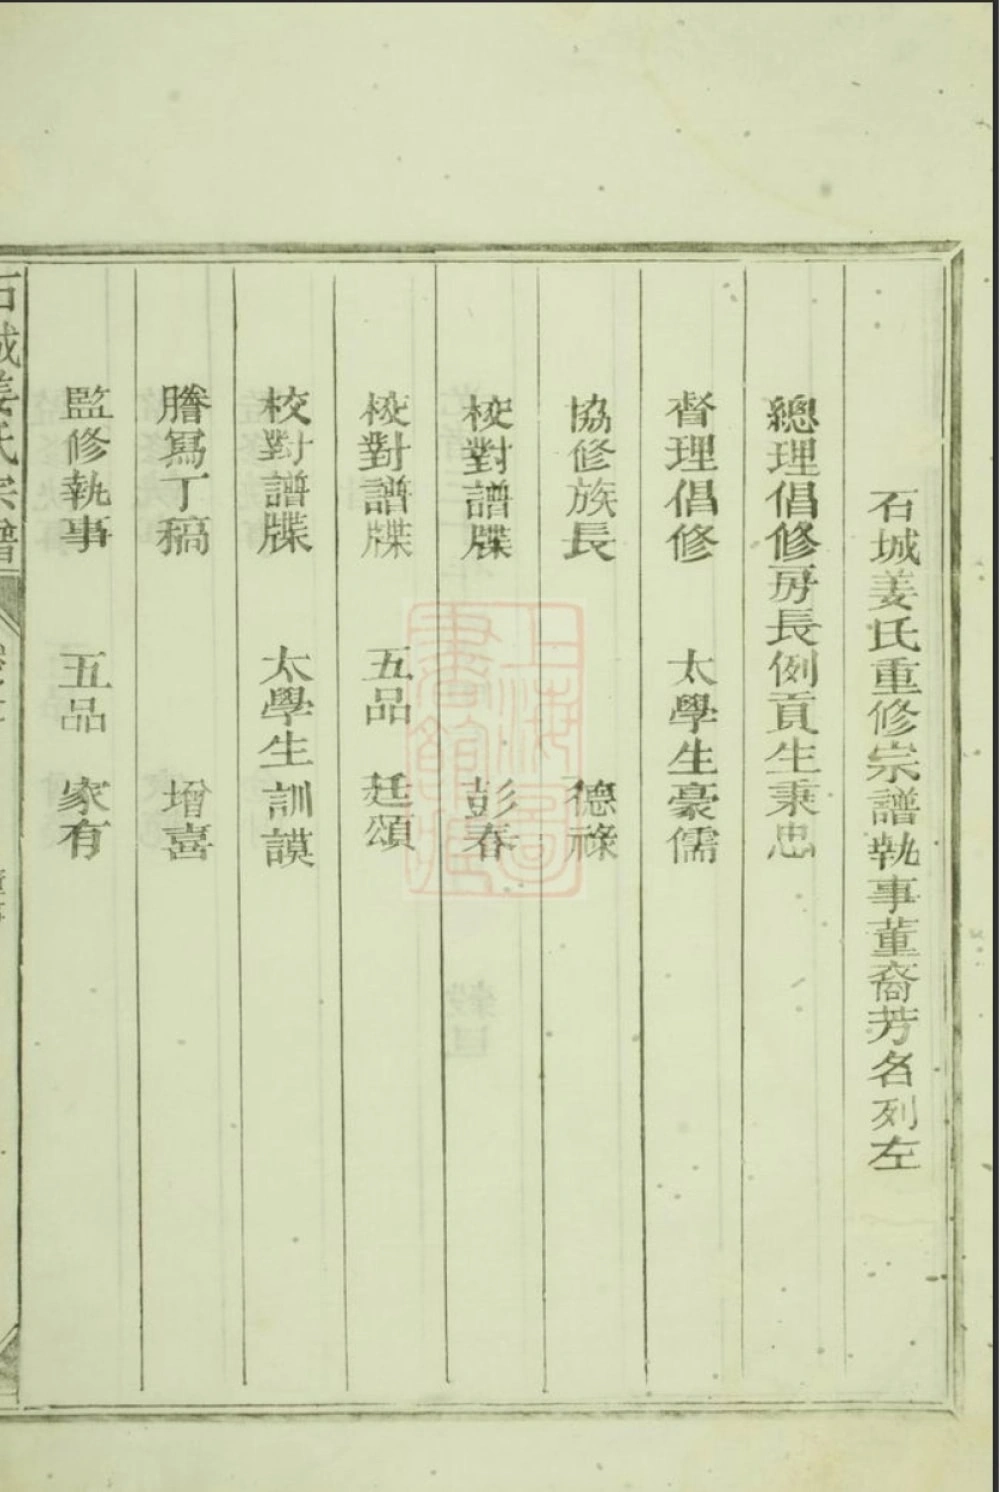 石城姜氏重修宗譜執事董裔芳名列左
總理倡修房長例貢生秉忠
督理倡修 太學生豪儒
協修族長 德祿
校對譜牒 彭春
校對譜牒 五品 廷頌
校對譜牒 太學生訓謨
謄寫丁稿 增喜
監修執事 五品 家有
石城姜氏宗譜
上海圖書館藏